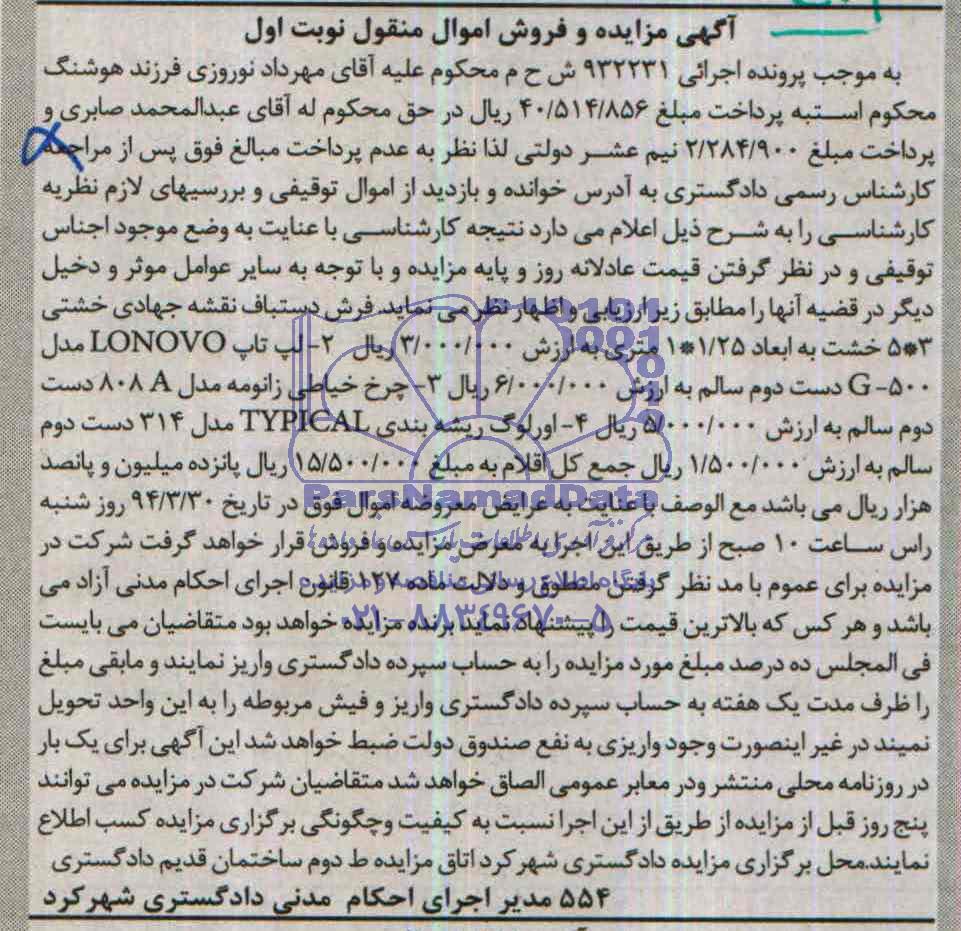 آگهی مزایده و فروش اموال منقول نوبت اول
به موجب پرونده اجرائی ۹۳۲۲۳۱ ش ح م محکوم علیه آقای مهرداد نوروزی فرزند هوشنگ
محکوم استبه پرداخت مبلغ ۴۰/۵۱۴/۸۵۶ ریال در حق محکوم له آقای عبدالمحمد صابری و
پرداخت مبلغ ۲/۲۸۴/۹۰۰ نیم عشر دولتی لذا نظر به عدم پرداخت مبالغ فوق پس از مراجعه
کارشناس رسمی دادگستری به آدرس خوانده و بازدید از اموال توقیفی و بررسیهای لازم نظریه
کارشناسی را به شرح ذیل اعلام می دارد نتیجه کارشناسی با عنایت به وضع موجود اجناس
توقیفی و در نظر گرفتن قیمت عادلانه روز و پایه مزایده و با توجه به سایر عوامل موثر و دخیل
دیگر در قضیه آنها را مطابق زیر ارزیابی و اظهار نظر می نماید.فرش دستباف نقشه جهادی خشتی
۳*۵ خشت به ابعاد ۱/۲۵*۱ متری به ارزش ۳/۰۰۰/۰۰۰ ریال ۲-لپ تاپ LONOVO مدل
G-۵۰۰ دست دوم سالم به ارزش ۶/۰۰۰/۰۰۰ ریال ۳-چرخ خیاطی ژانومه مدل ۸۰۸ A دست
دوم سالم به ارزش ۵/۰۰۰/۰۰۰ ریال ۴-اورلوگ ریشه بندی TYPICAL مدل ۳۱۴ دست دوم
سالم به ارزش ۱/۵۰۰/۰۰۰ ریال جمع کل اقلام به مبلغ ۱۵/۵۰۰/۰۰۰ ریال پانزده میلیون و پانصد
هزار ریال می باشد مع الوصف با عنایت به عرایض معروضه اموال فوق در تاریخ ۹۴/۳/۳۰ روز شنبه
راس ساعت ۱۰ صبح از طریق این اجرا به معرض مزایده وفروش قرار خواهد گرفت شرکت در
مزایده برای عموم با مد نظر گرفتن منطوق و دلالت ماده ۱۲۷ قانون اجرای احکام مدنی آزاد می
باشد و هر کس که بالاترین قیمت را پیشنهاد نماید برنده مزایده خواهد بود متقاضیان می بایست
فی المجلس ده درصد مبلغ مورد مزایده را به حساب سپرده دادگستری واریز نمایند و مابقی مبلغ
را ظرف مدت یک هفته به حساب سپرده دادگستری واریز و فیش مربوطه را به این واحد تحویل
نمیند در غیر اینصورت وجود واریزی به نفع صندوق دولت ضبط خواهد شد این آگهی برای یک بار
در روزنامه محلی منتشر ودر معابر عمومی الصاق خواهد شد متقاضیان شرکت در مزایده می توانند
پنج روز قبل از مزایده از طریق از این اجرا نسبت به کیفیت وچگونگی برگزاری مزایده کسب اطلاع
نمایند.محل برگزاری مزایده دادگستری شهرکرد اتاق مزایده ط دوم ساختمان قدیم دادگستری
۵۵۴ مدیر اجرای احکام مدنی دادگستری شهرکرد
ParsNamadData
۰۲۱-۸۸۳۴۹۶۷۰-۵